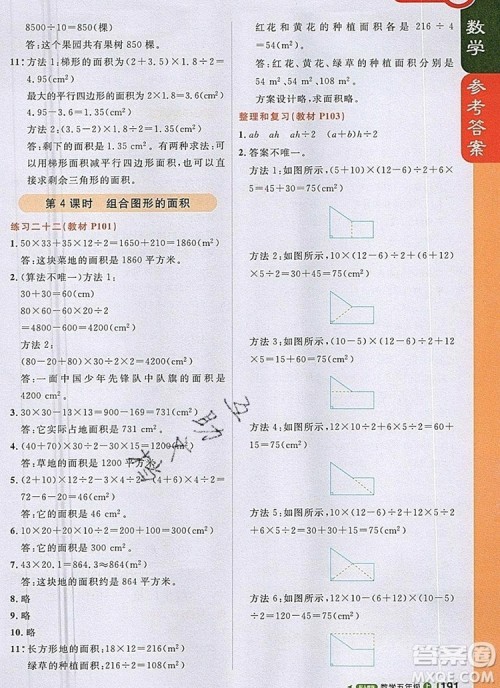 8500÷10=850(棵)
答:这个果园共有果树 850 棵。
11. 方法 1:梯形的面积(2+3.5)×1.8÷2=
4.95(cm²)
最大的平行四边形的面积 2×1.8=3.6
4.95-3.6=1.35(cm²)
方法 2:(3.5-2)×1.8÷2=1.35(cm²)
答:剩下的面积是 1.35。有两种求法;可
以用梯形面积减平行四边形面积或直接
求剩余三角形的面积。
第 4 课时 组合图形的面积
练习二十二(教材 P101)
1. 50×33+35×12÷2=1860(m²)
答:这块菜地的面积是 1860 平方米。
2. (算法不唯一)方法 1:
30+30=60(cm)
80×60-20×60÷2
=4800-600=4200(cm²)
方法 2:
(80-20+80)×30÷2×2=4200(cm²)
答:一面中国少年先锋队中队旗的面积
是 4200 cm²。
3. 30×30-13×13=900-169=731(cm²)
答:它的实际占地的面积是 731 cm²。
4. (40+70)×30÷2-30×15=1200(m²)
答:草地的面积是 1200 平方米。
5. 12×6-(2+4)×2÷2-(2+6)×5÷2=
72-6-20=46(cm²)
6. 10×20+20×20÷2×2=600(cm²)
答:它的面积是 600 cm²。
7. 43×20.1=864.3≈864(m²)
答:这块地的面积约是 864 平方米。
8. 略
9. 略
10. 略
11. 长方形的面积是 36×12÷2=216(m²)
绿草的种植面积是 216÷2=108(m²)
红花和黄花的种植面积各是 216÷4=
54(m²)
答:红花、黄花、绿草的种植面积分别是
54 m²、54 m²、108 m²。
方案设计略,求面积略。
整理和复习(教材 P103)
1. ab ah ah÷2 (a+b)h÷2
2. 答案不唯一。
方法 1:如图所示,(5+10)×6÷2+(12-
6)×5=75(cm²)
方法 2:如图所示,(12-6+12)
×5÷2+10×6÷2=75(cm²)
方法 3:如图所示,(10-5)×(12-6)÷2+
12×5=75(cm²)
方法 4:如图所示,10×12-(12
-6)×(10-5+10)÷2=75(cm²)
方法 5:如图所示,10×6+(12-6)×5÷
2=75(cm²)
方法 6:如图所示,10×6÷2+(12-6)×5
÷2+12×5÷2=75(cm²)
数学
参考答案
数学五年级
191